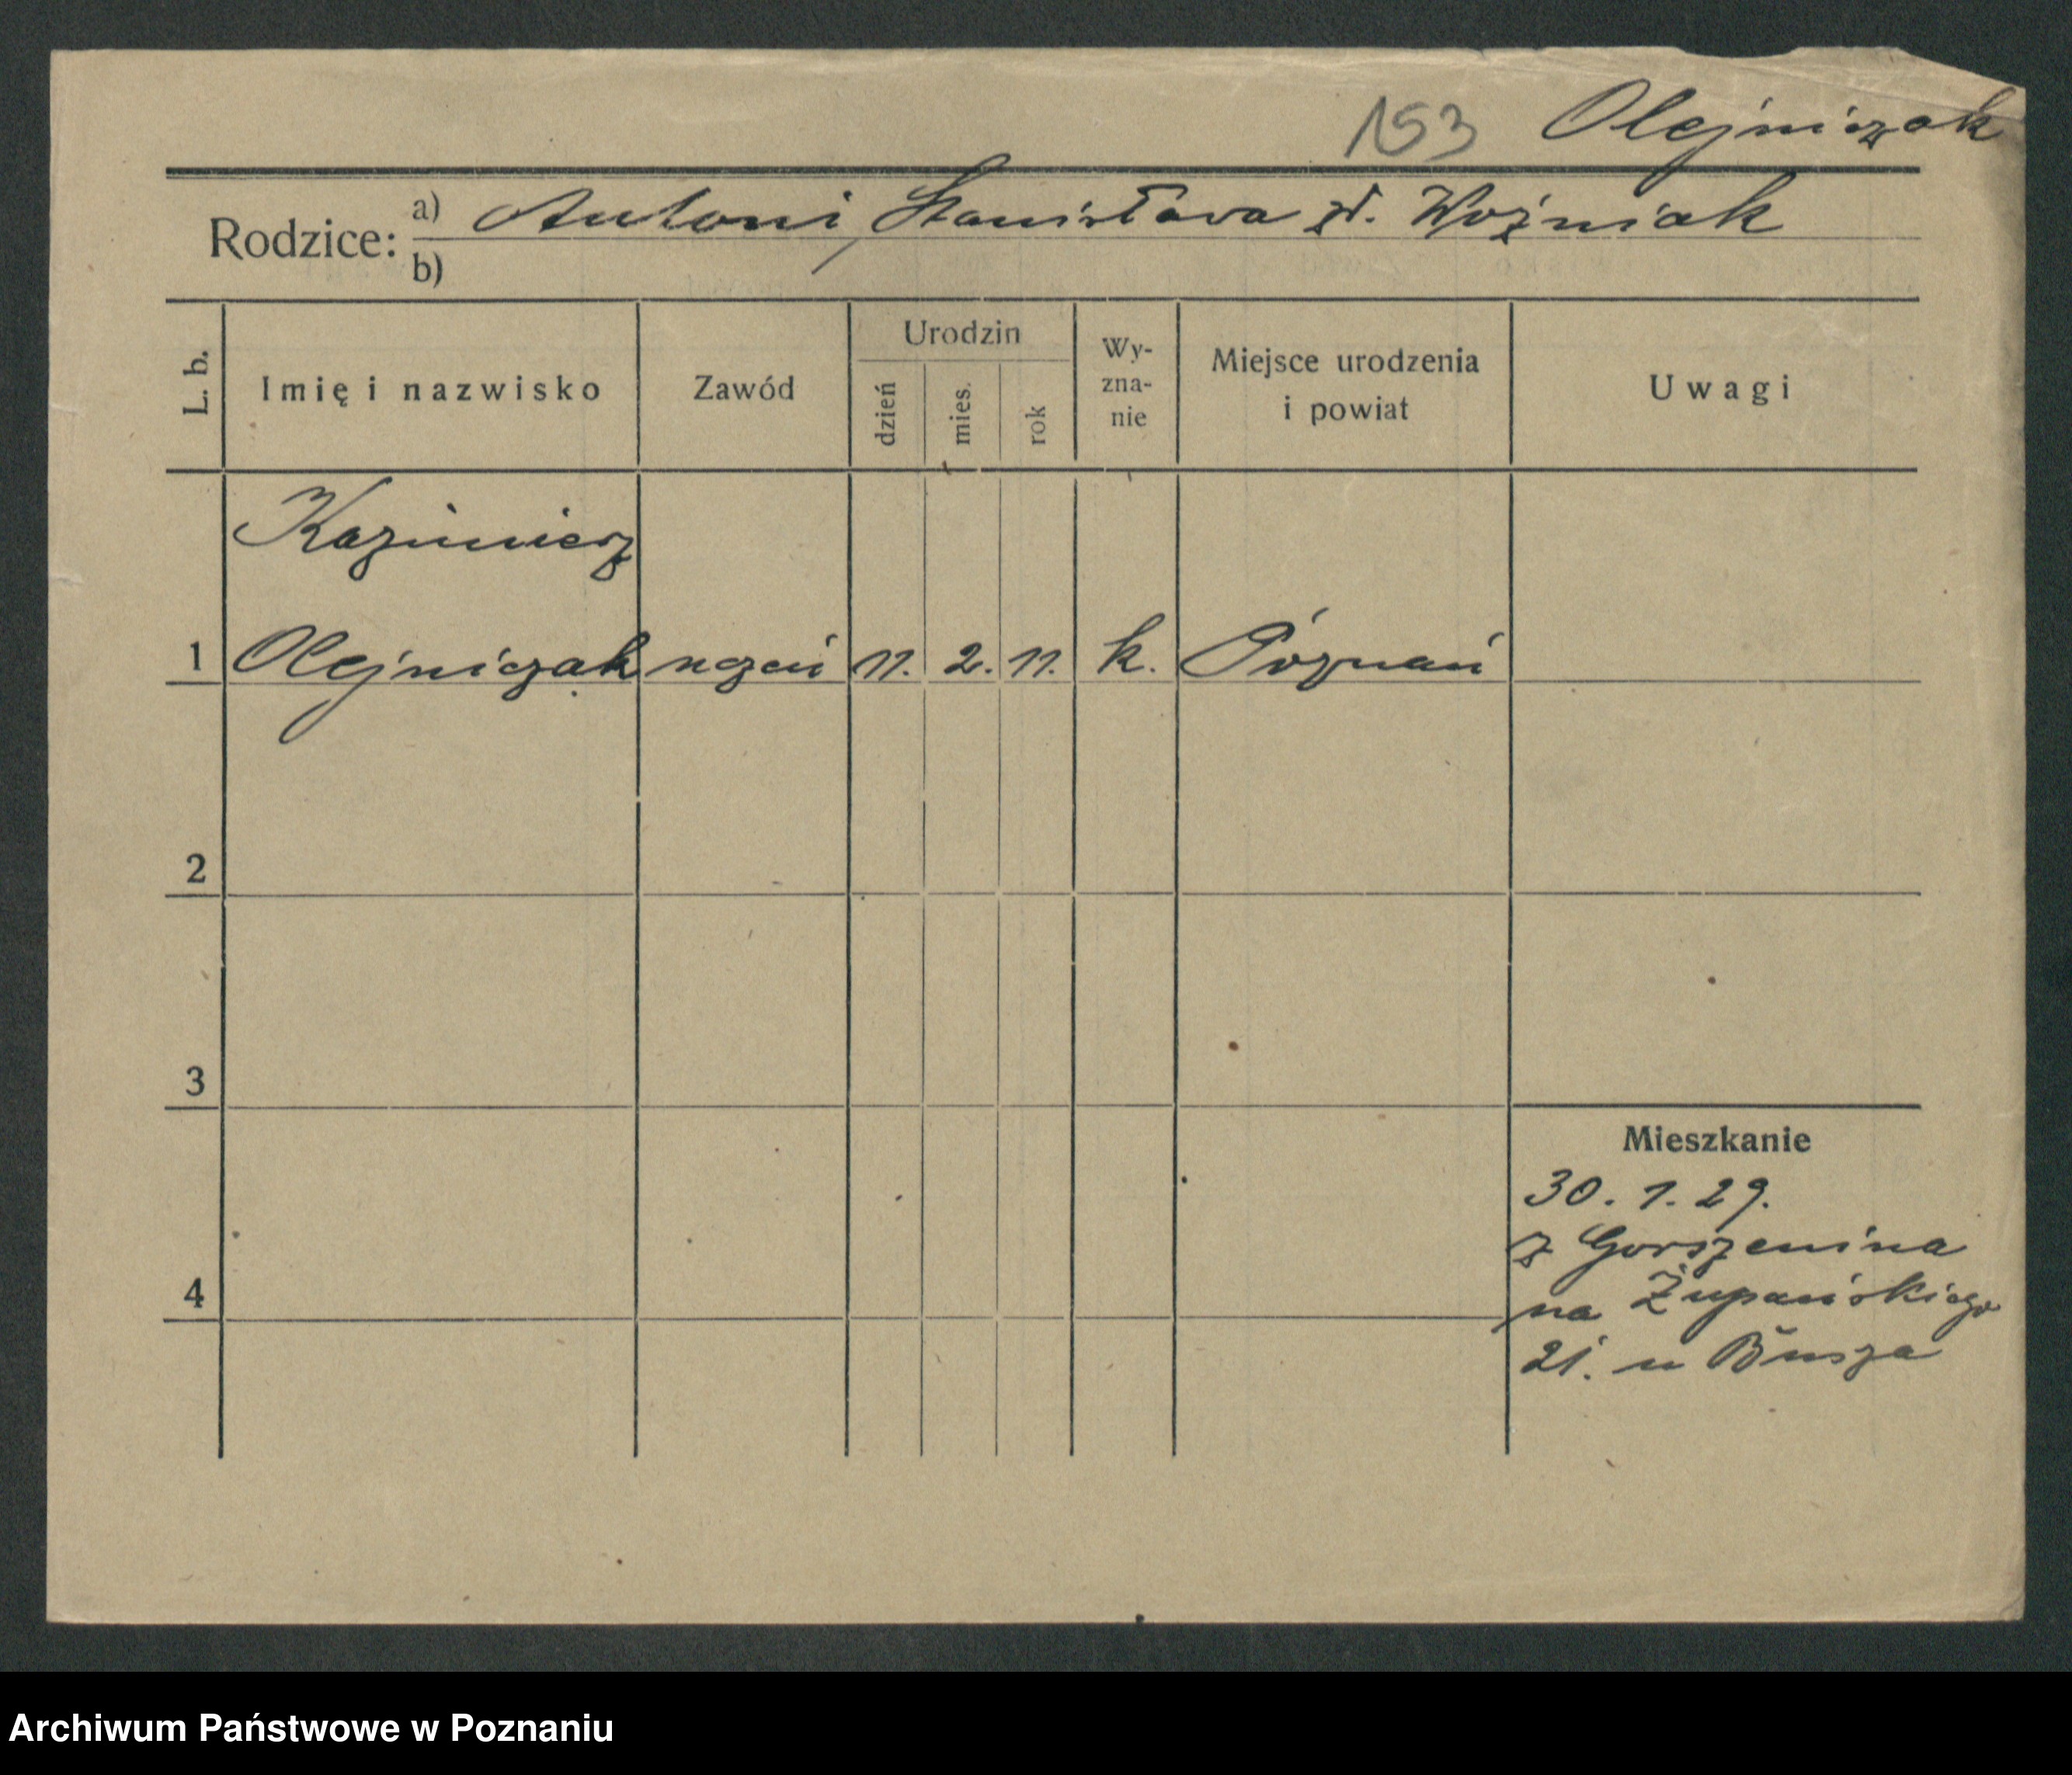 153 Olejniczak
Rodzice: a) Antoni, Stanisława zd. Woźniak
b)
L. b. Imię i nazwisko Zawód Urodzin dzień mies. rok Wy- zna- nie Miejsce urodzenia i powiat Uwagi
Kazimierz
1 Olejniczak uczeń 11. 2. 11. k. Poznań
2
3
Mieszkanie
30. 1. 29.
z Gorszenina
4
na Żupańskiego
21. u Busza
Archiwum Państwowe w Poznaniu